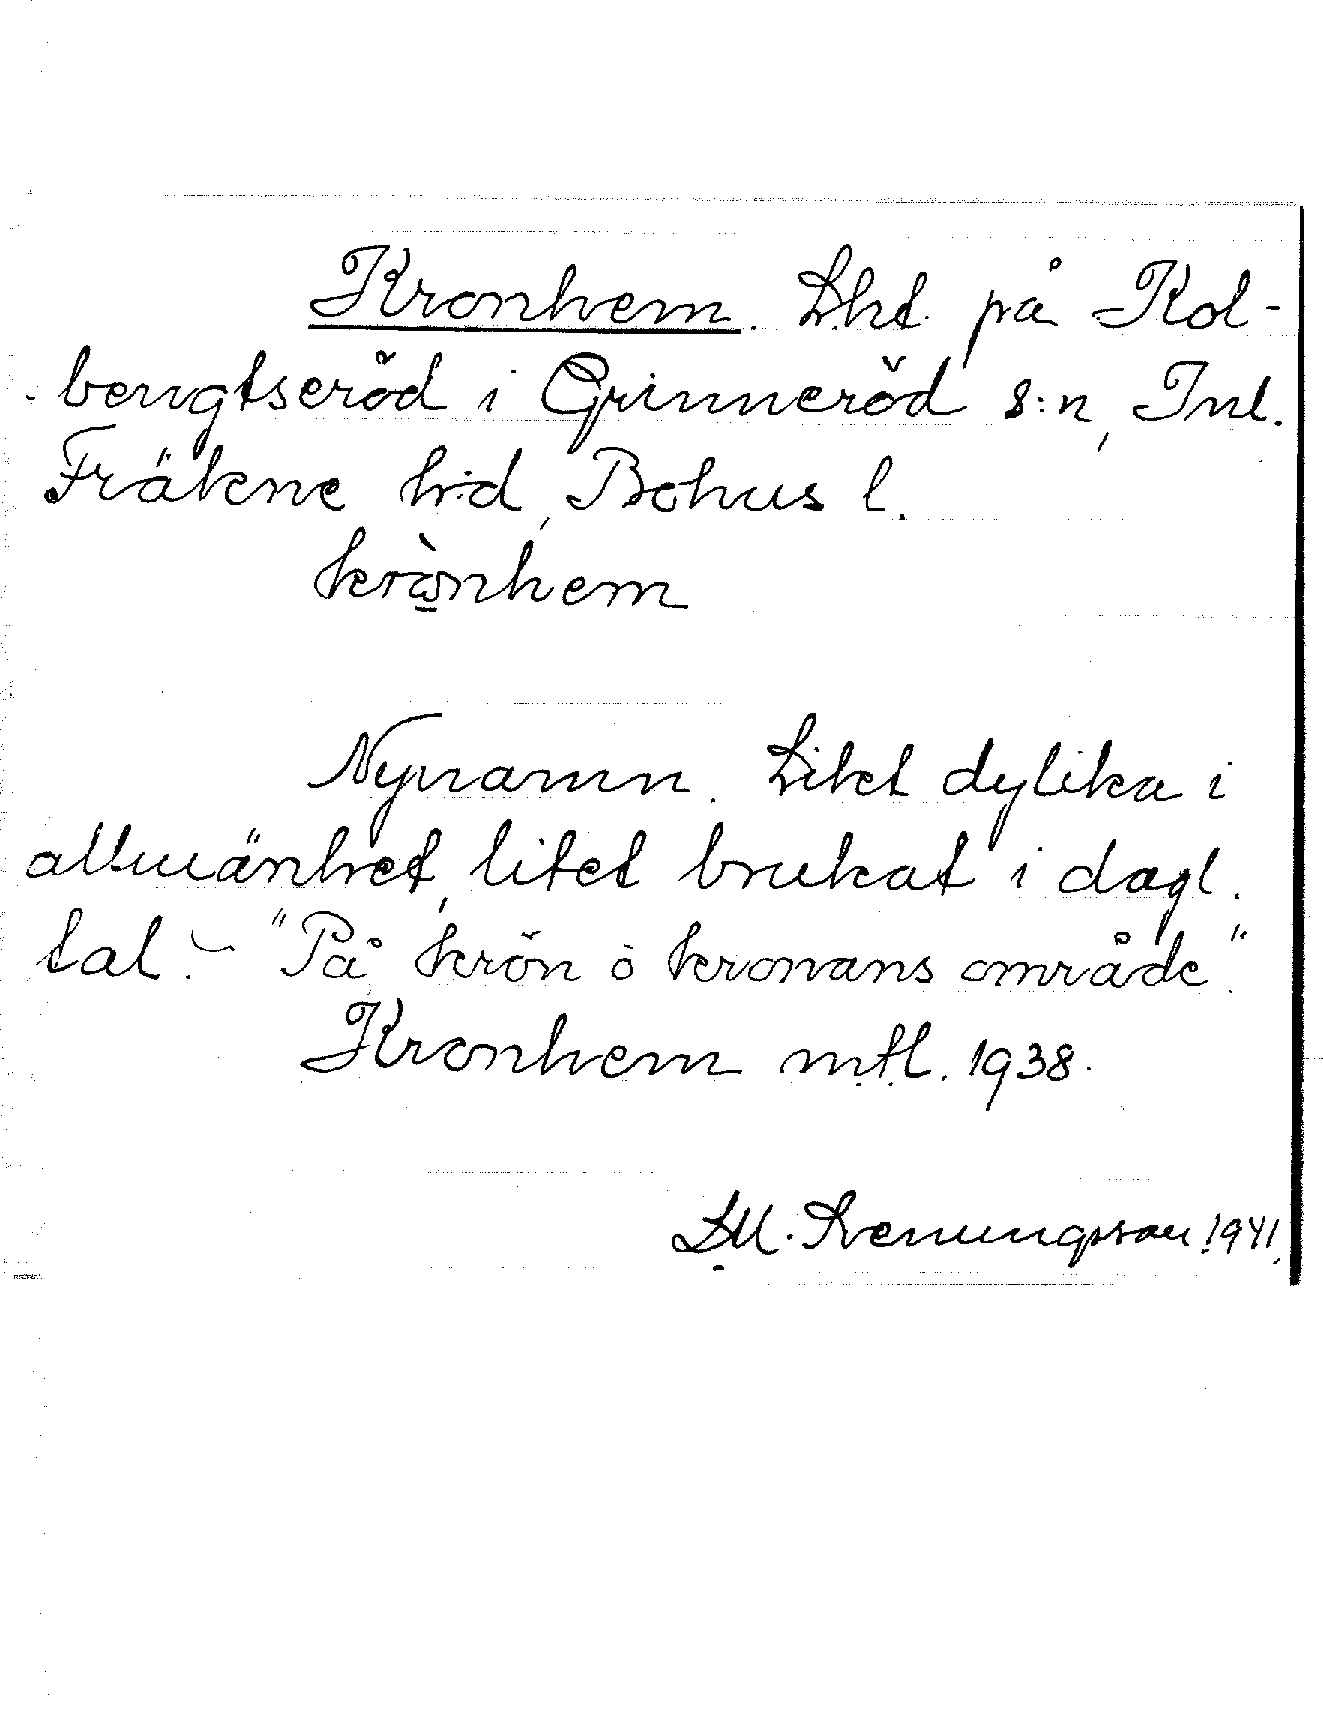 Kronhem. Lht. på Kol-
bengtseröd i Grinneröd s:n, Inl.
Fräkne h:d, Bohus l.
krònhem
Nynamn. Likt dylika i
allmänhet, litet brukat i dagl.
tal. – "På krön ö kronans område".
Kronhem mtl. 1938.
1941.